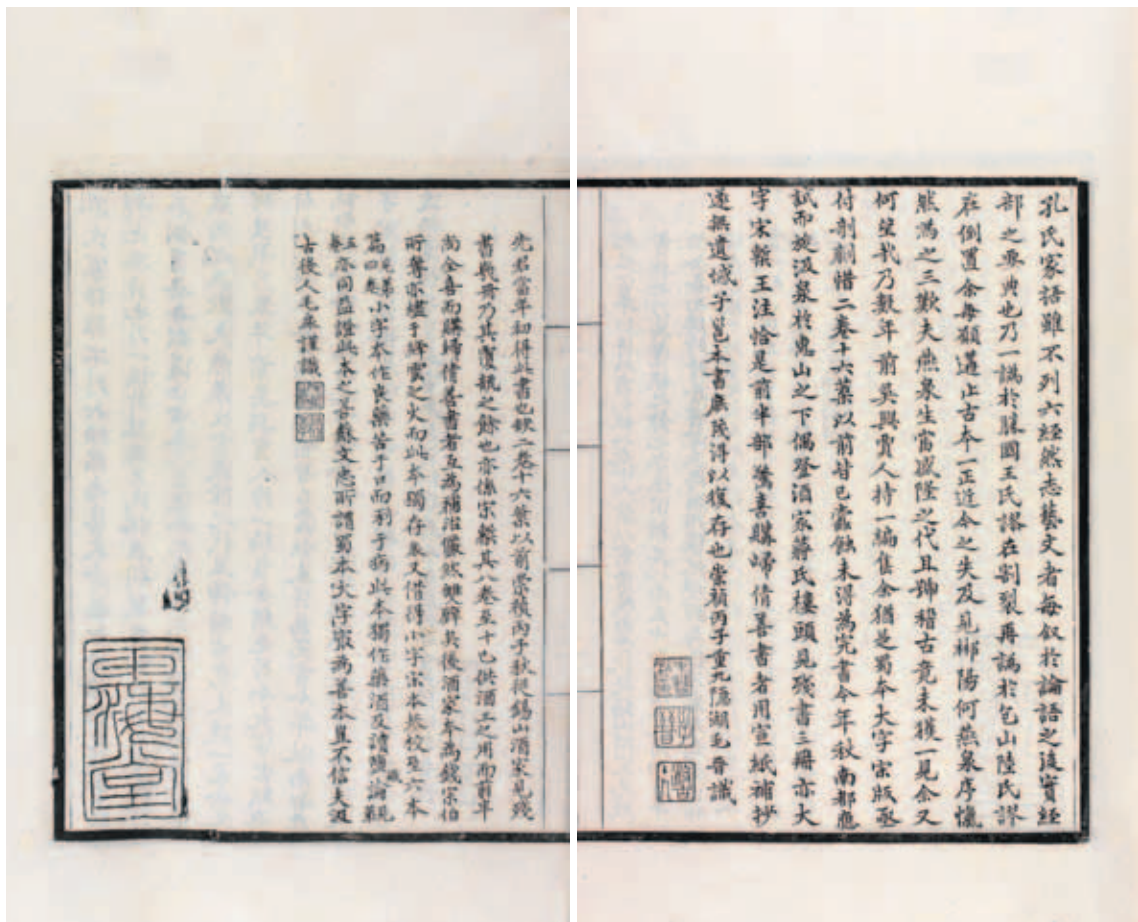 孔氏家語雖不列六經然志藝文者每叙於論語之後實經
部之要典也乃一譌於勝國王氏謬在割裂再譌於包山陸氏謬
在倒置余每願遘止古本一正迨今之失及見郴陽何燕泉序慨
然為之三歎夫燕泉生當盛隆之代且號稽古竟未獲一見余又
何望哉乃數年前吳興賈人持一編售余猶是蜀本大字宋版亟
付剞劂惜二卷十六葉以前皆已蠹蝕未得為完書今年秋南都應
試而旋汲泉於惠山之下偶登酒家蔣氏樓頭見殘書三冊亦大
字宋槧王注恰是前半部驚喜購歸倩善書者用宣紙補抄
遂無遺憾子邕本書庶幾得以復存也崇禎丙子重九隱湖毛晉識
先君當年初得此書也缺二卷十六葉以前崇禎丙子秋從錫山酒家見殘
書數冊乃其覆瓿之餘也亦係宋槧其八卷至十已供酒工之用而前半
尚全喜而購歸倩善書者互為補治儼然雙璧其後酒家本為錢宗伯
所奪亦燼于絳雲之火而此本獨存扆又借得小字宋本參校至六本
篇四卷小字本作良藥苦于口而利于病此本獨作藥酒及讀鹽鐵論
五亦同益證此本之善蘇文忠所謂蜀本大字最為善本豈不信夫汲
古後人毛扆謹識